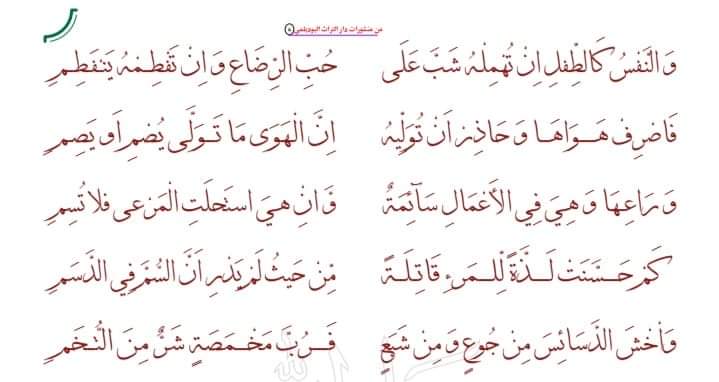 من منشورات دار التراث البودیلمي ٨
وَالنَّفْسُ كَالطِّفْلِ اِنْ تُهْمِلْهُ شَبَّ عَلَى حُبِّ الرِّضَاعِ وَاِنْ تَفْطِمْهُ يَنْفَطِمِ
فَاصْرِفْ هَوَاهَا وَحَاذِرْ اَنْ تُوَلِّيَهُ اِنَّ الْهَوَى مَا تَوَلَّى يُصْمِ اَوْ يَصِمِ
وَرَاعِهَا وَهِيَ فِي الْأَعْمَالِ سَآئِمَةٌ وَاِنْ هِيَ اسْتَحْلَتِ الْمَرْعَى فَلَا تُسِمِ
كَمْ حَسَّنَتْ لَذَّةً لِلْمَرْءِ قَاتِلَةً مِنْ حَيْثُ لَمْ يَدْرِ اَنَّ السُّمَّ فِي الدَّسَمِ
وَاخْشَ الدَّسَائِسَ مِنْ جُوعٍ وَمِنْ شِبَعٍ فَرُبَّ مَخْمَصَةٍ شَرٌّ مِنَ التُّخَمِ